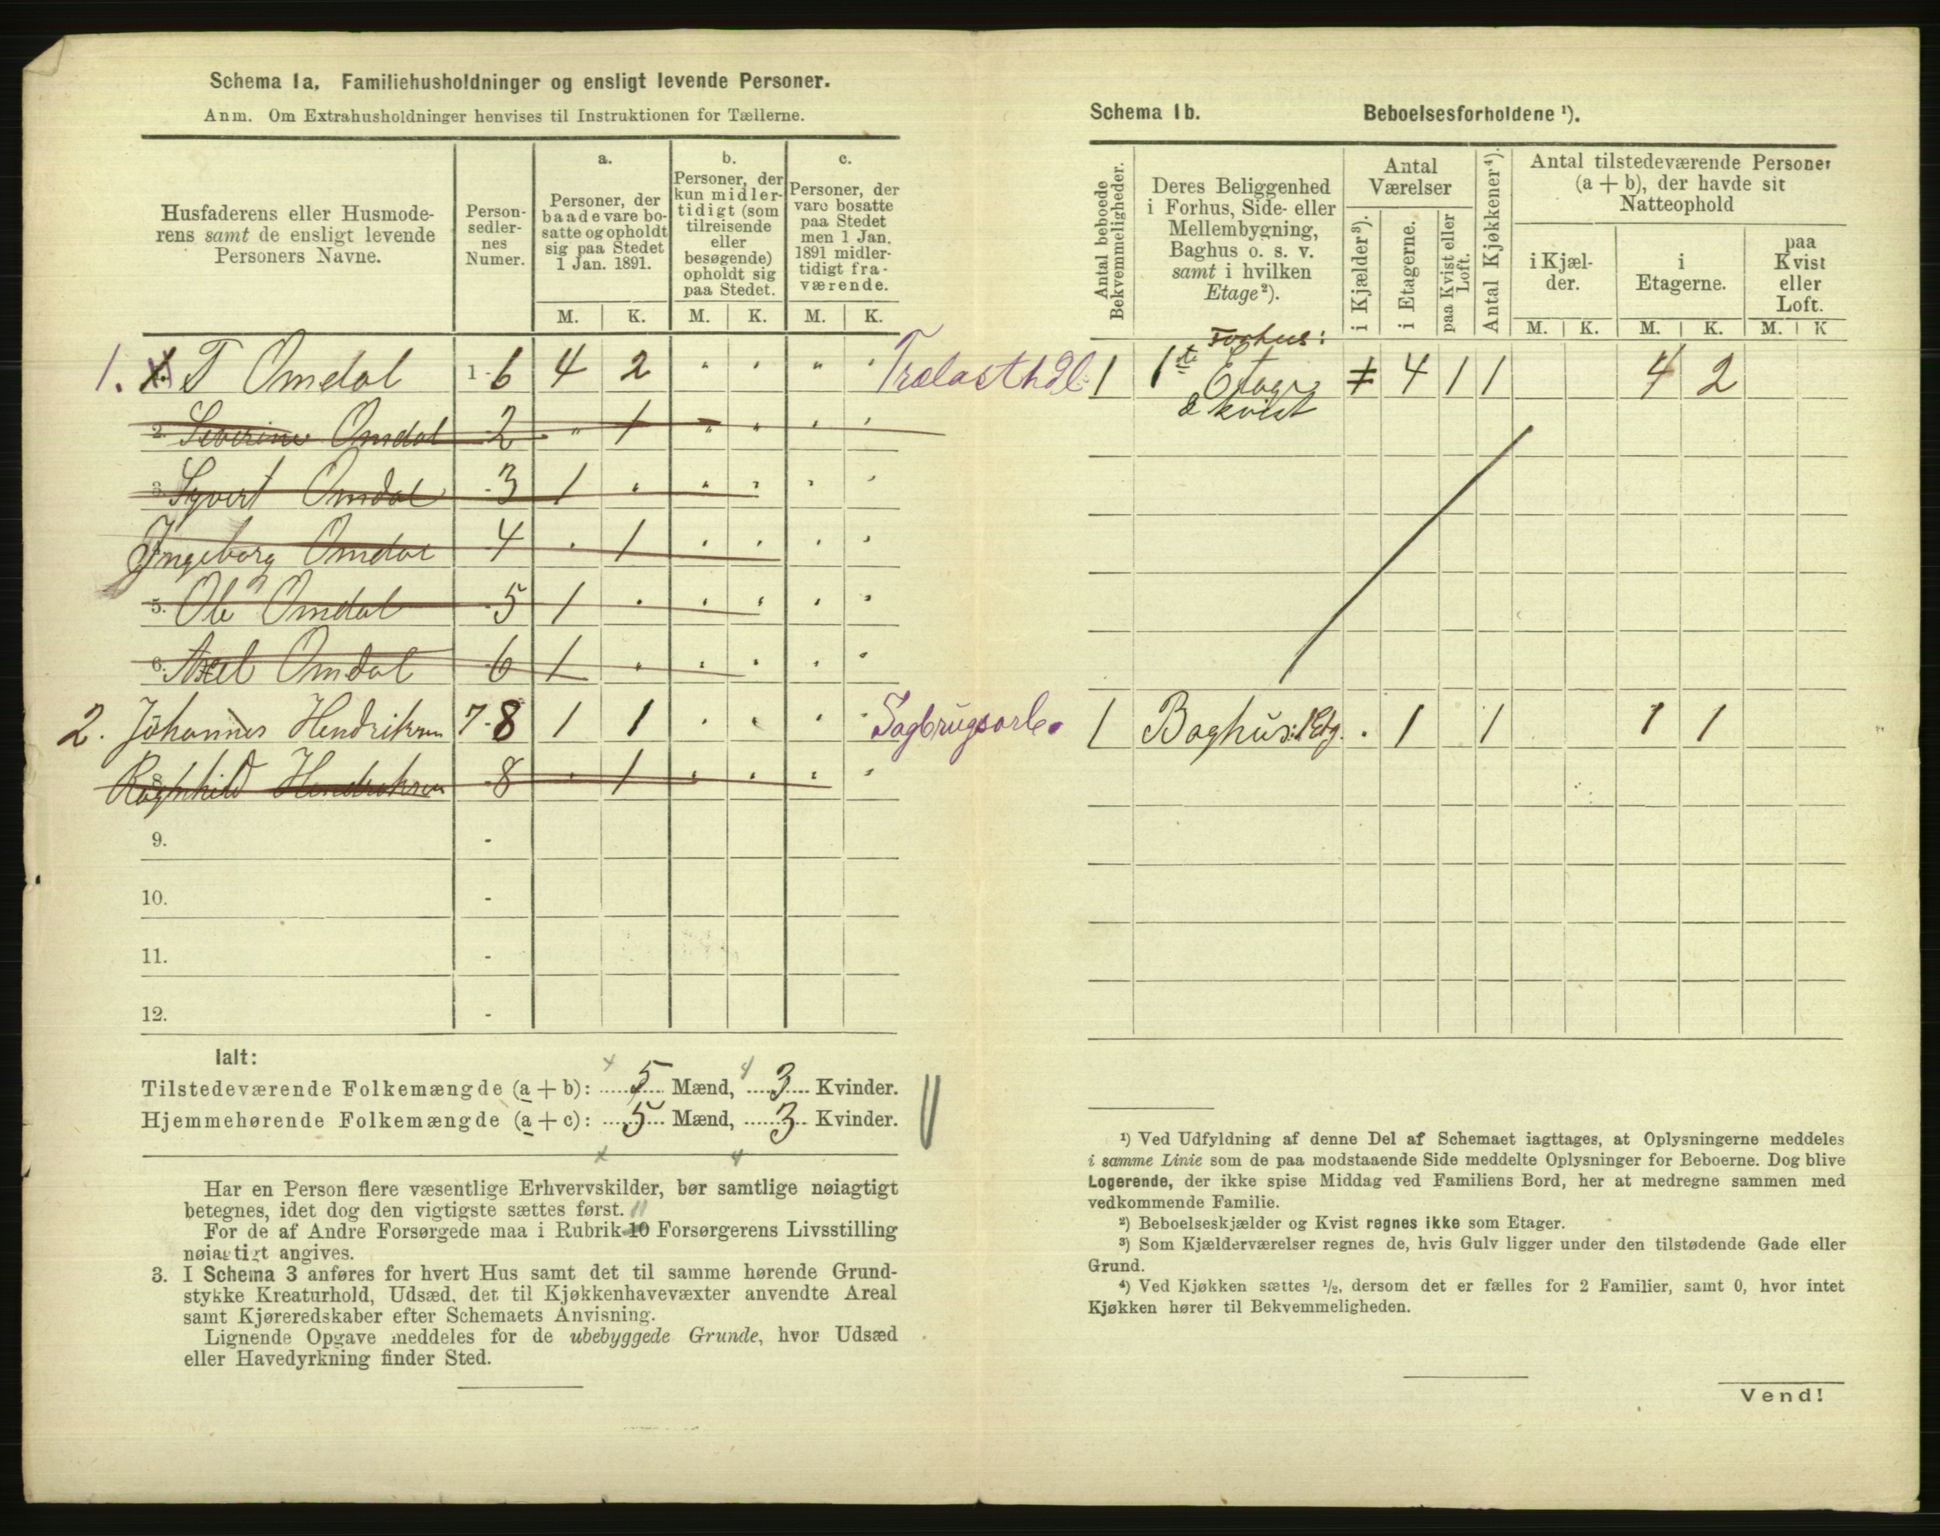 Schema 1a. Familiehusholdninger og ensligt levende Personer.
Anm. Om Extrahusholdninger henvises til Instruktionen for Tællerne.
Husfaderens eller Husmoderens samt de ensligt levende Personers Navne.
Personsedlernes Numer.
a.
Personer, der baade vare bosatte og opholdt sig paa Stedet 1 Jan. 1891.
b.
Personer, der kun midlertidigt (som tilreisende eller besøgende) opholdt sig paa Stedet.
c.
Personer, der vare bosatte paa Stedet men 1 Jan. 1891 midlertidigt fraværende.
M. K. M. K. M. K.
1. T Omdal 1-6 4 2 " " " " Trælasthdl:
2. Severine Omdal -2 " 1 " " " "
3. Syvert Omdal -3 1 " " " " "
Ingeborg Omdal 4 " 1 " " " "
5. Ole Omdal -5 1 " " " " "
6. Axel Omdal -6 1 " " " " "
2. Johannes Hendriksen 7-8 1 1 " " " " Sagbrugsarb.
8. Ragnhild Hendriksen -8 " 1 " " " "
9. -
10. -
11. -
12. -
Ialt:
Tilstedeværende Folkemængde (a + b): 5 Mænd, 3 Kvinder.
Hjemmehørende Folkemængde (a + c): 5 Mænd, 3 Kvinder.
Har en Person flere væsentlige Erhvervskilder, bør samtlige nøiagtigt
betegnes, idet dog den vigtigste sættes først.
For de af Andre Forsørgede maa i Rubrik 10 Forsørgerens Livsstilling
nøiagtigt angives.
3. I Schema 3 anføres for hvert Hus samt det til samme hørende Grund-
stykke Kreaturhold, Udsæd, det til Kjøkkenhavevæxter anvendte Areal
samt Kjøreredskaber efter Schemaets Anvisning.
Lignende Opgave meddeles for de ubebyggede Grunde, hvor Udsæd
eller Havedyrkning finder Sted.
Schema 1b. Beboelsesforholdene ¹).
Antal beboede Bekvemmeligheder.
Deres Beliggenhed i Forhus, Side- eller Mellembygning, Baghus o. s. v. samt i hvilken Etage ²).
Antal Værelser
i Kjælder ³).
i Etagerne.
paa Kvist eller Loft.
Antal Kjøkkener ⁴).
Antal tilstedeværende Personer (a + b), der havde sit Natteophold
i Kjælder.
i Etagerne.
paa Kvist eller Loft.
M. K. M. K. M. K
Forhus:
1 1ste Etage 4 1 1 4 2
& kvist
1 Baghus: 1 Etg. . 1 1 1 1
¹) Ved Udfyldning af denne Del af Schemaet iagttages, at Oplysningerne meddeles
i samme Linie som de paa modstaaende Side meddelte Oplysninger for Beboerne. Dog blive
Logerende, der ikke spise Middag ved Familiens Bord, her at medregne sammen med
vedkommende Familie.
²) Beboelseskjælder og Kvist regnes ikke som Etager.
³) Som Kjælderværelser regnes de, hvis Gulv ligger under den tilstødende Gade eller
Grund.
⁴) Ved Kjøkken sættes ½, dersom det er fælles for 2 Familier, samt 0, hvor intet
Kjøkken hører til Bekvemmeligheden.
Vend!